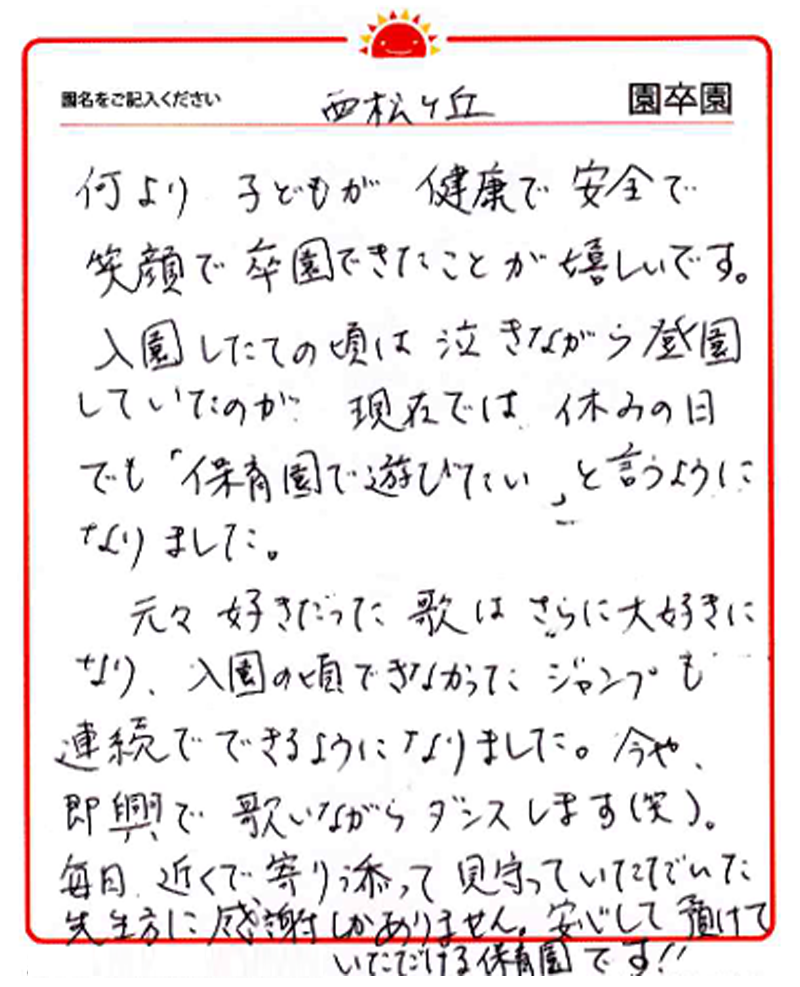 園名をご記入ください 西松ヶ丘 園卒園
何より 子どもが 健康で 安全で
笑顔で 卒園できたことが 嬉しいです。
入園したての頃は 泣きながら 登園
していたのが 現在では 休みの日
でも「保育園で遊びたい」と言うように
なりました。
元々 好きだった 歌は さらに大好きに
なり、入園の頃できなかった ジャンプも
連続でできるようになりました。今や、
即興で 歌いながら ダンスします(笑)。
毎日、近くで寄り添って 見守っていただいた
先生方に 感謝しかありません。安心して 預けて
いただける保育園です!!